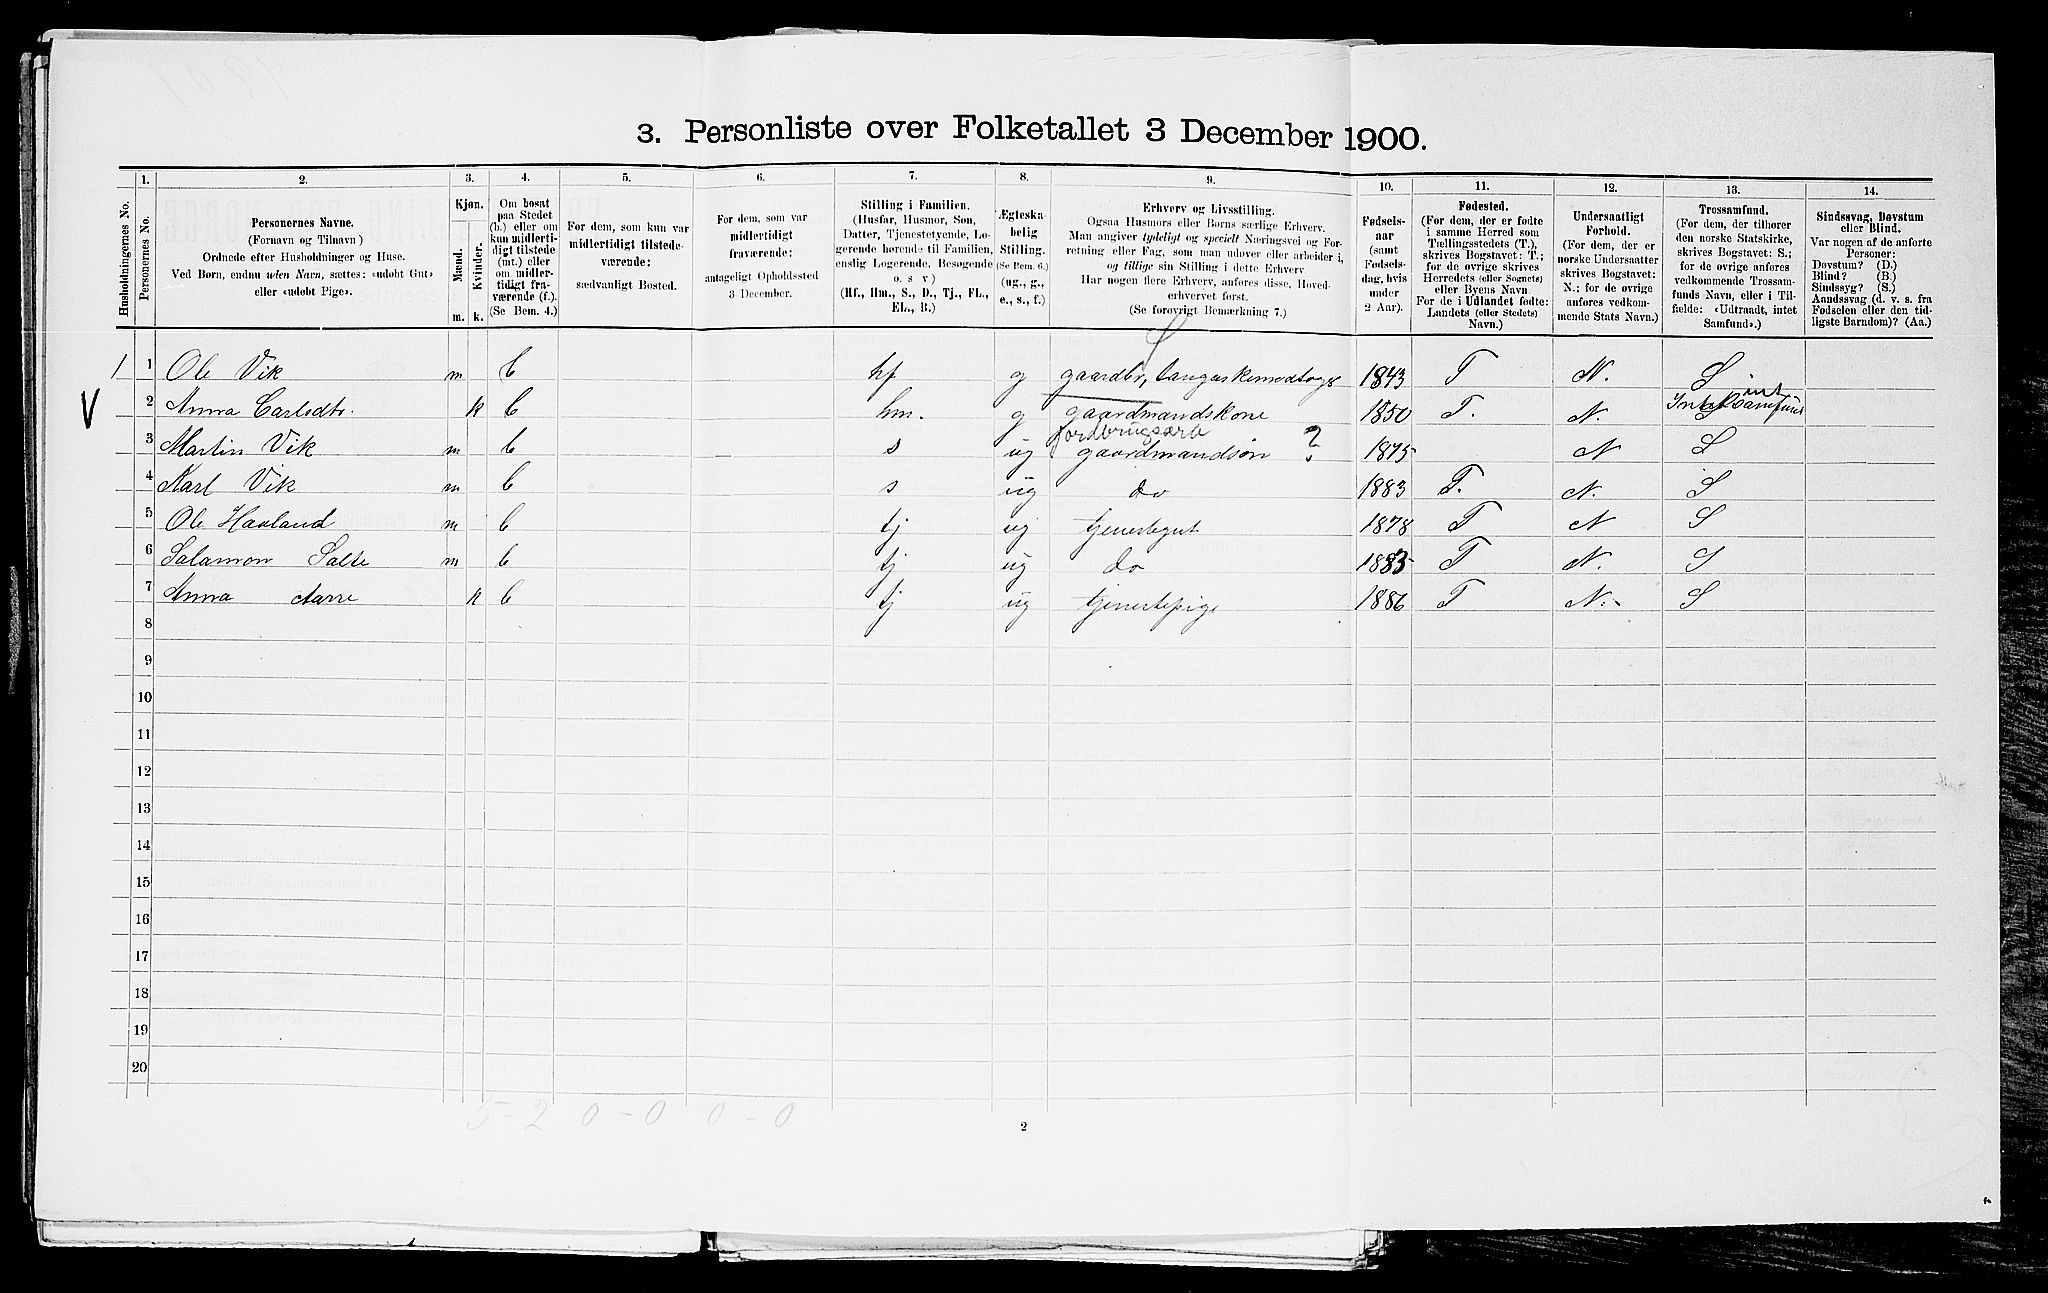 3. Personliste over Folketallet 3 December 1900.
1. 2. 3. 4. 5. 6. 7. 8. 9. 10. 11. 12. 13. 14.
Husholdningernes No.
Personernes No.
Personernes Navne.
(Fornavn og Tilnavn)
Ordnede efter Husholdninger og Huse.
Ved Børn, endnu uden Navn, sættes: «udøbt Gut»
eller «udøbt Pige».
Kjøn.
Mænd.
Kvinder.
m. k.
Om bosat
paa Stedet
(b.) eller om
kun midlerti-
digt tilstede
(mt.) eller
om midler-
tidigt fra-
værende (f.).
(Se Bem. 4.)
For dem, som kun var
midlertidigt tilstede-
værende:
sædvanligt Bosted.
For dem, som var
midlertidigt
fraværende:
antageligt Opholdssted
3 December.
Stilling i Familien.
(Husfar, Husmor, Søn,
Datter, Tjenestetyende, Lo-
gerende hørende til Familien,
enslig Logerende, Besøgende
o. s v)
(Hf., Hm., S., D., Tj., FL.,
EL., B.)
Ægteska-
belig
Stilling.
(Se Bem. 6.)
(ug., g.,
e., s., f.)
Erhverv og Livsstilling.
Ogsaa Husmors eller Børns særlige Erhverv.
Man angiver tydeligt og specielt Næringsvei og For-
retning eller Fag, som man udøver eller arbeider i,
og tillige sin Stilling i dette Erhverv
Har nogen flere Erhverv, anføres disse, Hoved-
erhvervet først.
(Se forøvrigt Bemærkning 7.)
Fødsels-
aar
(samt
Fødsels-
dag, hvis
under
2 Aar).
Fødested.
(For dem, der er fødte
i samme Herred som
Tællingsstedets (T.),
skrives Bogstavet: T.;
for de øvrige skrives
Herredets (eller Sognets)
eller Byens Navn
For de i Udlandet fødte:
Landets (eller Stedets)
Navn.)
Undersaatligt
Forhold.
(For dem, der er
norske Undersaatter
skrives Bogstavet:
N.; for de øvrige
anføres vedkom-
mende Stats Navn.)
Trossamfund.
(For dem, der tilhører
den norske Statskirke,
skrives Bogstavet: S.;
for de øvrige anføres
vedkommende Trossam-
funds Navn, eller i Til-
fælde: «Udtraadt, intet
Samfund».)
Sindssvag, Døvstum
eller Blind.
Var nogen af de anførte
Personer:
Døvstum? (D.)
Blind? (B.)
Sindssyg? (S.)
Aandssvag (d. v. s. fra
Fødselen eller den tid-
ligste Barndom)? (Aa.)
1 1 Ole Vik m b hf g gaardbr, 1843 T N. S
V 2 Anna Carlsdtr. k b hm. g gaardmandskone 1850 T. N.
3 Martin Vik m b s ug jordbrugsarb
gaardmandsøn ? 1875 N S
4 Karl Vik m b s ug do 1883 T. N. S
5 Ole Haaland m b tj ug tjenestegut 1878 T N S
6 Salamon Salte m b tj ug do 1883 T N. S
7 Anna Aarre k b tj ug tjenestepige 1886 T N. S
8
9
10
11
12
13
14
15
16
17
18
19
20
5-2 0-0 0-0
2